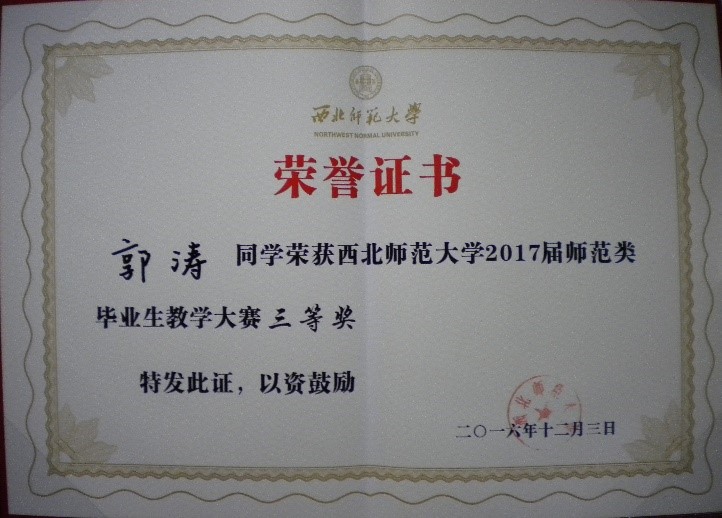 西北师范大学
NORTHWEST NORMAL UNIVERSITY
荣誉证书
郭涛 同学荣获西北师范大学2017届师范类
毕业生教学大赛三等奖
特发此证，以资鼓励
二〇一六年十二月三日